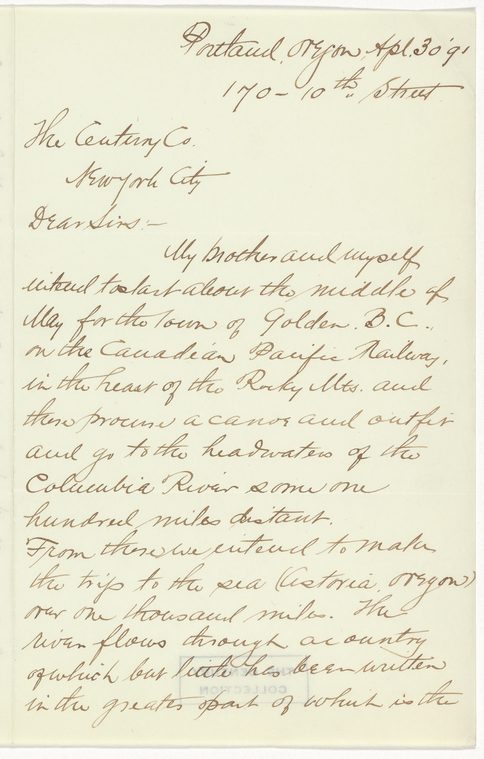 Portland, Oregon, Apl. 30 '91
170 - 10th Street
The Century Co.
New York City
Dear Sirs:-
My brother and myself
intend to start about the middle of
May for the town of Golden, B.C.,
on the Canadian Pacific Railway,
in the heart of the Rocky Mts. and
there procure a canoe and outfit
and go to the headwaters of the
Columbia River some one
hundred miles distant.
From there we intend to make
the trip to the sea (Astoria, Oregon)
over one thousand miles. The
river flows through a country
of which but little has been written
in the greater part of which is the
COLLECTION